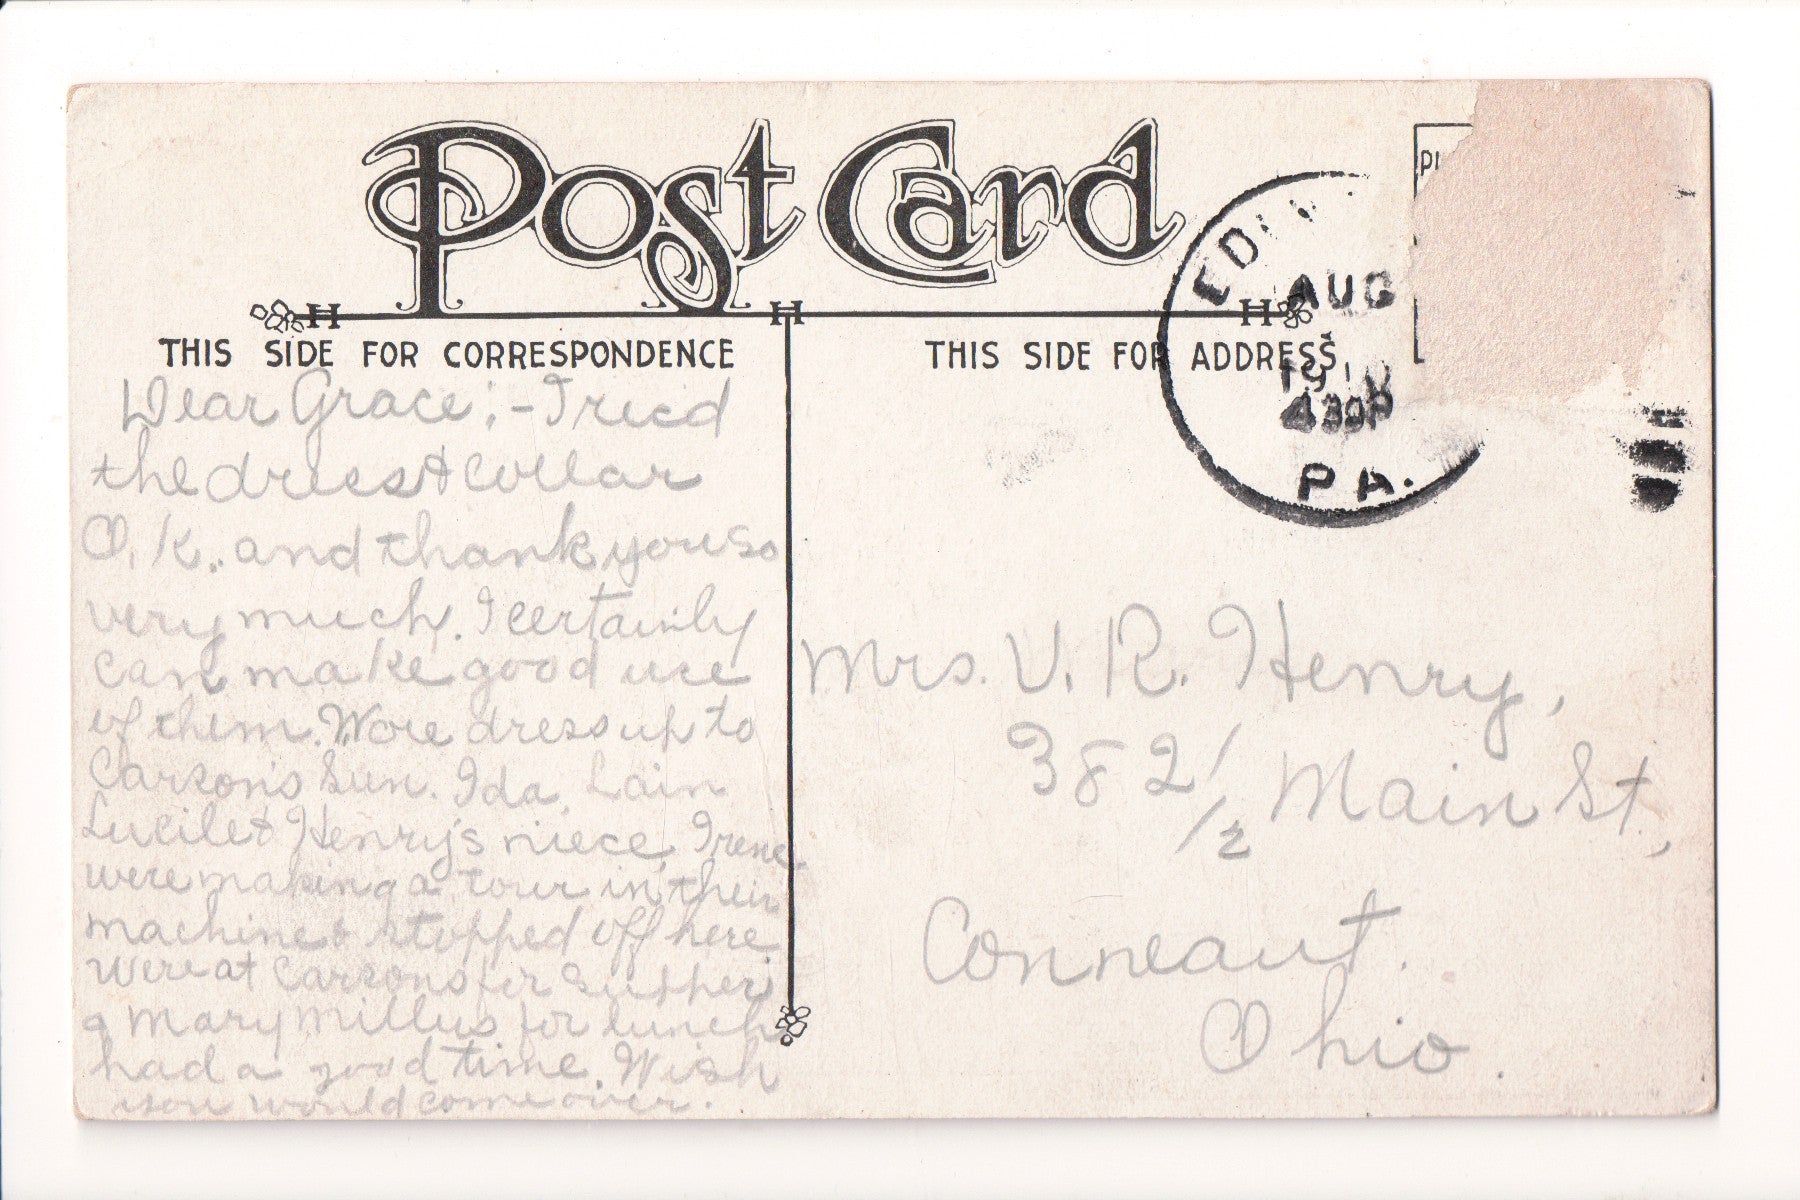 Post Card
THIS SIDE FOR CORRESPONDENCE
THIS SIDE FOR ADDRESS
AUG
430P
PA.
Dear Grace:- Tried
the dress & collar
O.K. and thank you so
very much. I certainly
can make good use
of them. Wore dress up to
Carson's Sun. Ida, Lain
Lucile & Henry's niece, Irene
were making a tour in their
machine & stopped off here
Were at Carsons for supper
& Mary Millus for lunch
had a good time. Wish
you would come over.
Mrs. V. R. Henry,
382 1/2 Main St,
Conneaut.
Ohio.